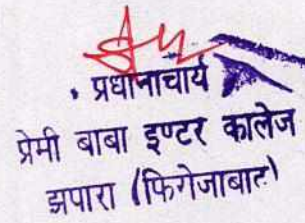 प्रधानाचार्य
प्रेमी बाबा इण्टर कालेज
झपारा (फिरोजाबाद)